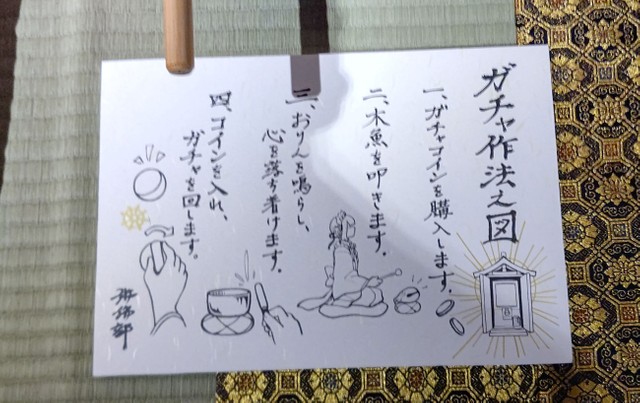 ガチャ作法之図
一、ガチャコインを購入します。
二、木魚を叩きます。
三、おりんを鳴らし、
心を落ち着けます。
四、コインを入れ、
ガチャを回します。